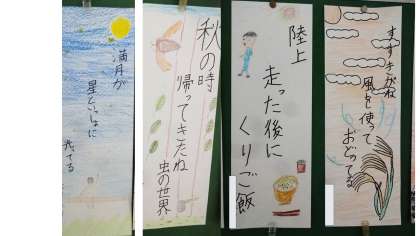 すすきがね
風を使って
おどってる
陸上
走った後に
くりご飯
秋の時
帰ってきたね
虫の世界
満月が
星といっしょに
光てる